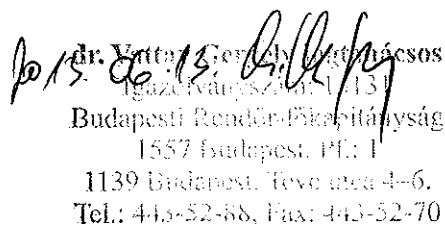 2013 06 13.
dr. Vattai Gergely jogtanácsos
Igazolványszáma: 1
Budapesti Rendőr-főkapitányság
1557 Budapest. Pf.: 1
1139 Budapest. Teve utca 4-6.
Tel.: 443-52-88, Fax: 443-52-70